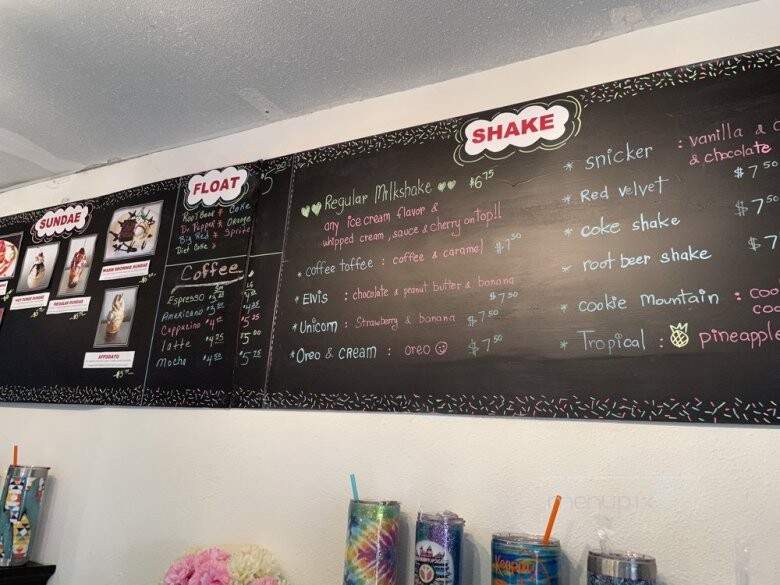 SUNDAE
WARM BROWNIE SUNDAE
HOT FUDGE SUNDAE
REGULAR SUNDAE
AFFOGATO
FLOAT
Root Beer * Coke
Dr. Pepper * Orange
Big Red * Sprite
Diet Coke
Coffee
Espresso
Americano
Cappacino
latte
Mocha
5 00
SHAKE
Regular Milkshake $6 75
any ice cream flavor &
whipped cream, sauce & cherry ontop!!
* coffee toffee : coffee & caramel $7 50
* Elvis : chocolate & peanut butter & banana
$7 50
* Unicorn : Strawberry & banana $7 50
* Oreo & cream : oreo $7 50
* snicker : vanilla &
& chocolate
$7 50
* Red velvet
$7 50
* coke shake
* root beer shake
* cookie Mountain :
* Tropical : pineapple